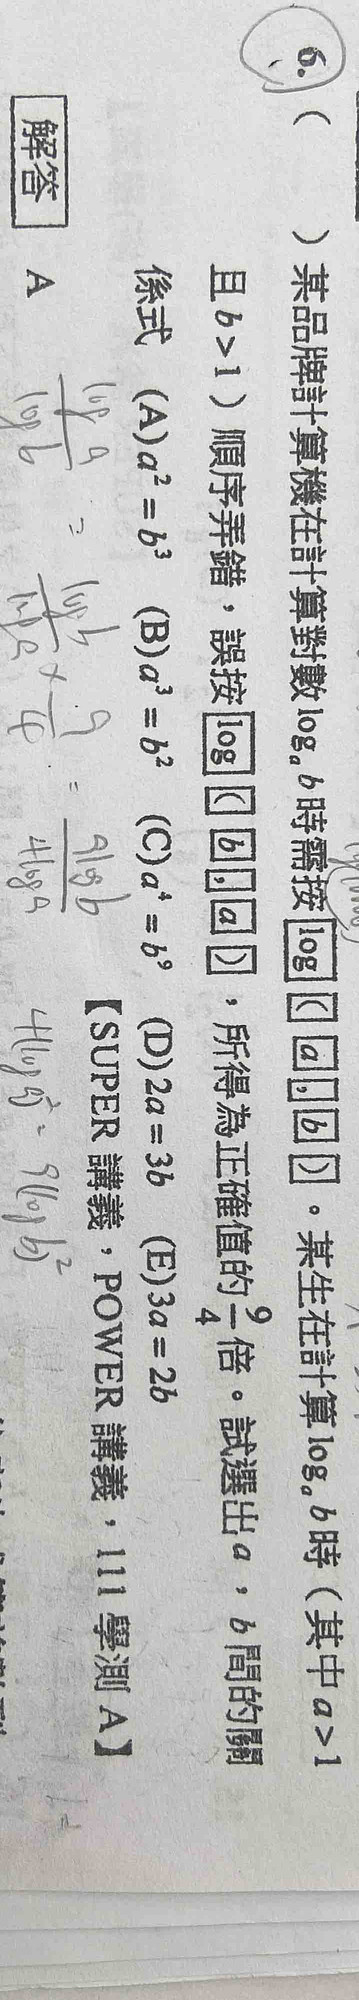 6. (　　) 某品牌計算機在計算對數 logₐ b 時需按 log ( a , b ) 。某生在計算 logₐ b 時（其中 a > 1
且 b > 1）順序弄錯，誤按 log ( b , a ) ，所得為正確值的 9/4 倍。試選出 a，b 間的關
係式 (A) a² = b³ (B) a³ = b² (C) a⁴ = b⁹ (D) 2a = 3b (E) 3a = 2b
【SUPER 講義，POWER 講義，111 學測 A】
解答 A
log a / log b = log b / log a × 9/4 = 9 log b / 4 log a
4(log a)² = 9(log b)²